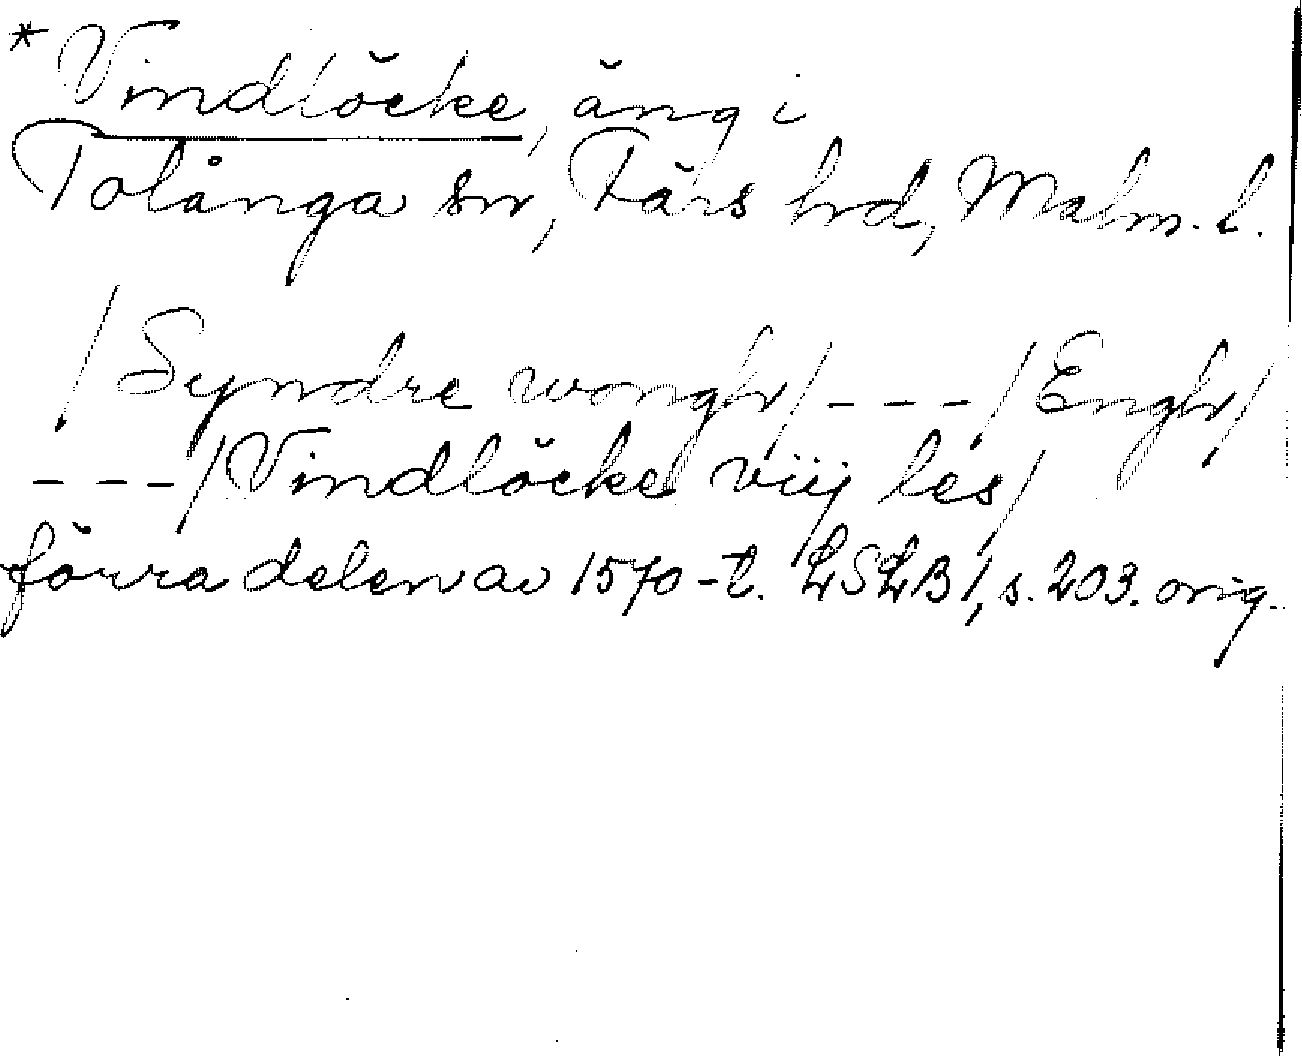 *Vindlöcke, äng i
Tolånga sn, Färs hrd, Malm. l.
/Syndre wongh/ --- /Engh/
---/Vindlöcke viij les/
förra delen av 1570-t. LSLB 1, s. 203. orig.